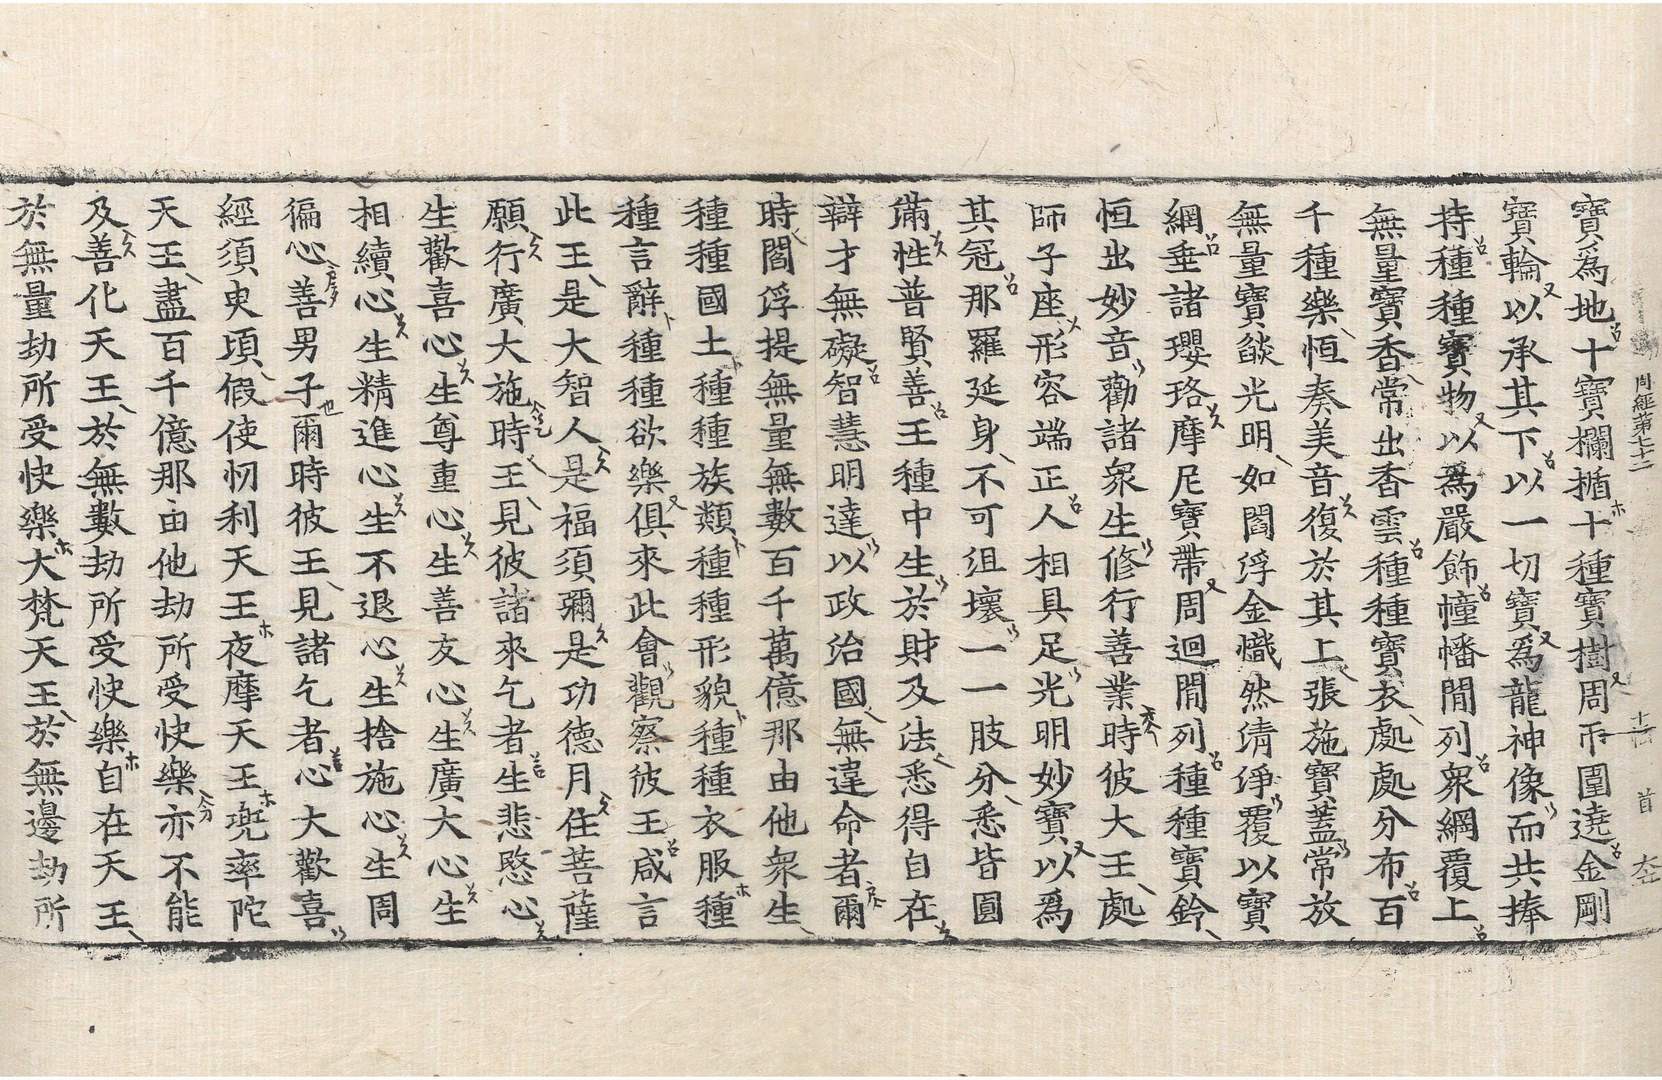 周經第七十二
寶爲地十寶欄楯十種寶樹周帀圍遶金剛
寶輪以承其下以一切寶爲龍神像而共捧
持種種寶物以爲嚴飾幢幡閒列衆網覆上
無量寶香常出香雲種種寶衣處處分布百
千種樂恒奏美音復於其上張施寶蓋常放
無量寶燄光明如閻浮金熾然清淨覆以寶
網垂諸瓔珞摩尼寶帶周迴閒列種種寶鈴
恒出妙音勸諸衆生修行善業時彼大王處
師子座形容端正人相具足光明妙寶以爲
其冠那羅延身不可沮壞一一肢分悉皆圓
滿性普賢善王種中生於財及法悉得自在
辯才無礙智慧明達以政治國無違命者爾
時閻浮提無量無數百千萬億那由他衆生
種種國土種種族類種種形貌種種衣服種
種言辭種種欲樂俱來此會觀察彼王咸言
此王是大智人是福須彌是功德月住菩薩
願行廣大施時王見彼諸來乞者生悲愍心
生歡喜心生尊重心生善友心生廣大心生
相續心生精進心生不退心生捨施心生周
徧心善男子爾時彼王見諸乞者心大歡喜
經須臾頃假使忉利天王夜摩天王兜率陀
天王盡百千億那由他劫所受快樂亦不能
及善化天王於無數劫所受快樂自在天王
於無量劫所受快樂大梵天王於無邊劫所